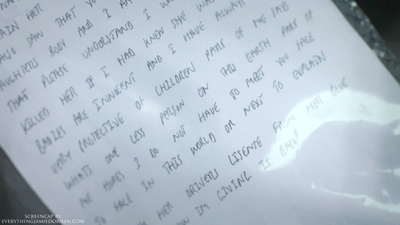 AIN HER
ALSO SAW THAT
AUGHTERS BODY AND I AM
THAT PLEASE UNDERSTAND I
KILLED HER IF I HAD KNEW SHE WAS
BABIES ARE INNOCENT AND I HAVE ALWAYS
VERY PROTECTIVE OF CHILDREN PART OF ME SAID
WHATS ONE LESS PERSON ON THIS EARTH PART OF
ME HOPES I DO NOT HAVE TO MEET YOU FACE
TO FACE IN THIS WORLD OR NEXT TO EXPLAIN
HER DRIVERS LISENSE FROM HER
IM GIVING IT BACK
SCREENCAP BY
EVERYTHINGJAMIEDORNAN.COM